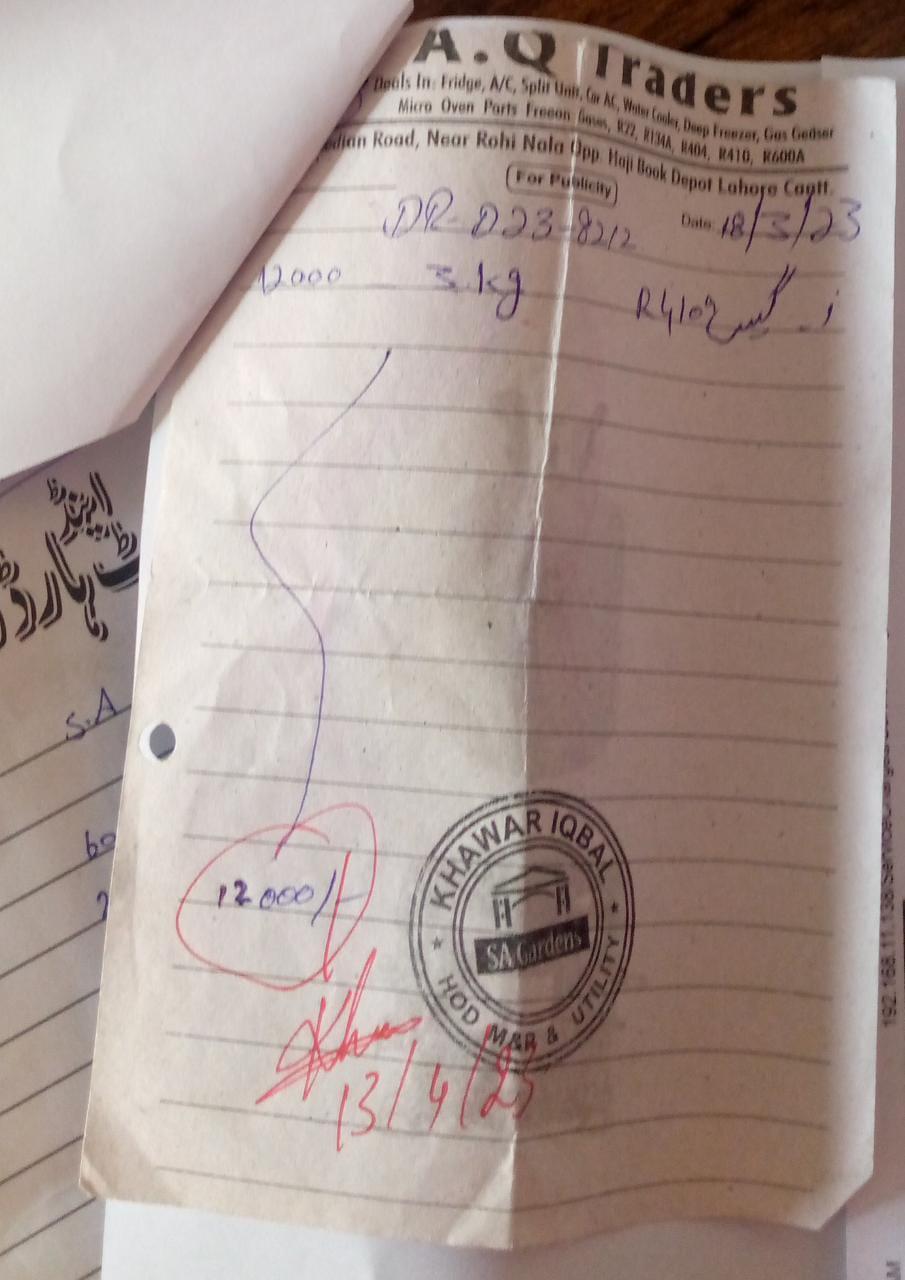 A.Q Traders
Deals In: Fridge, A/C, Split Unit, Car AC, Water Cooler, Deep Freezer, Gas Geaser
Micro Oven Parts Freeon Gases, R22, R134A, R404, R410, R600A
Road, Near Rohi Nala Opp. Haji Book Depot Lahore Cantt.
For Publicity
Date: 18/3/23
DR-D23-8212
12000 3.kg R410 گیس
12000/-
KHAWAR IQBAL
SA Gardens
HOD M&R & UTILITY
13/4/23
اینڈ
S.A
60
192.168.11.138/